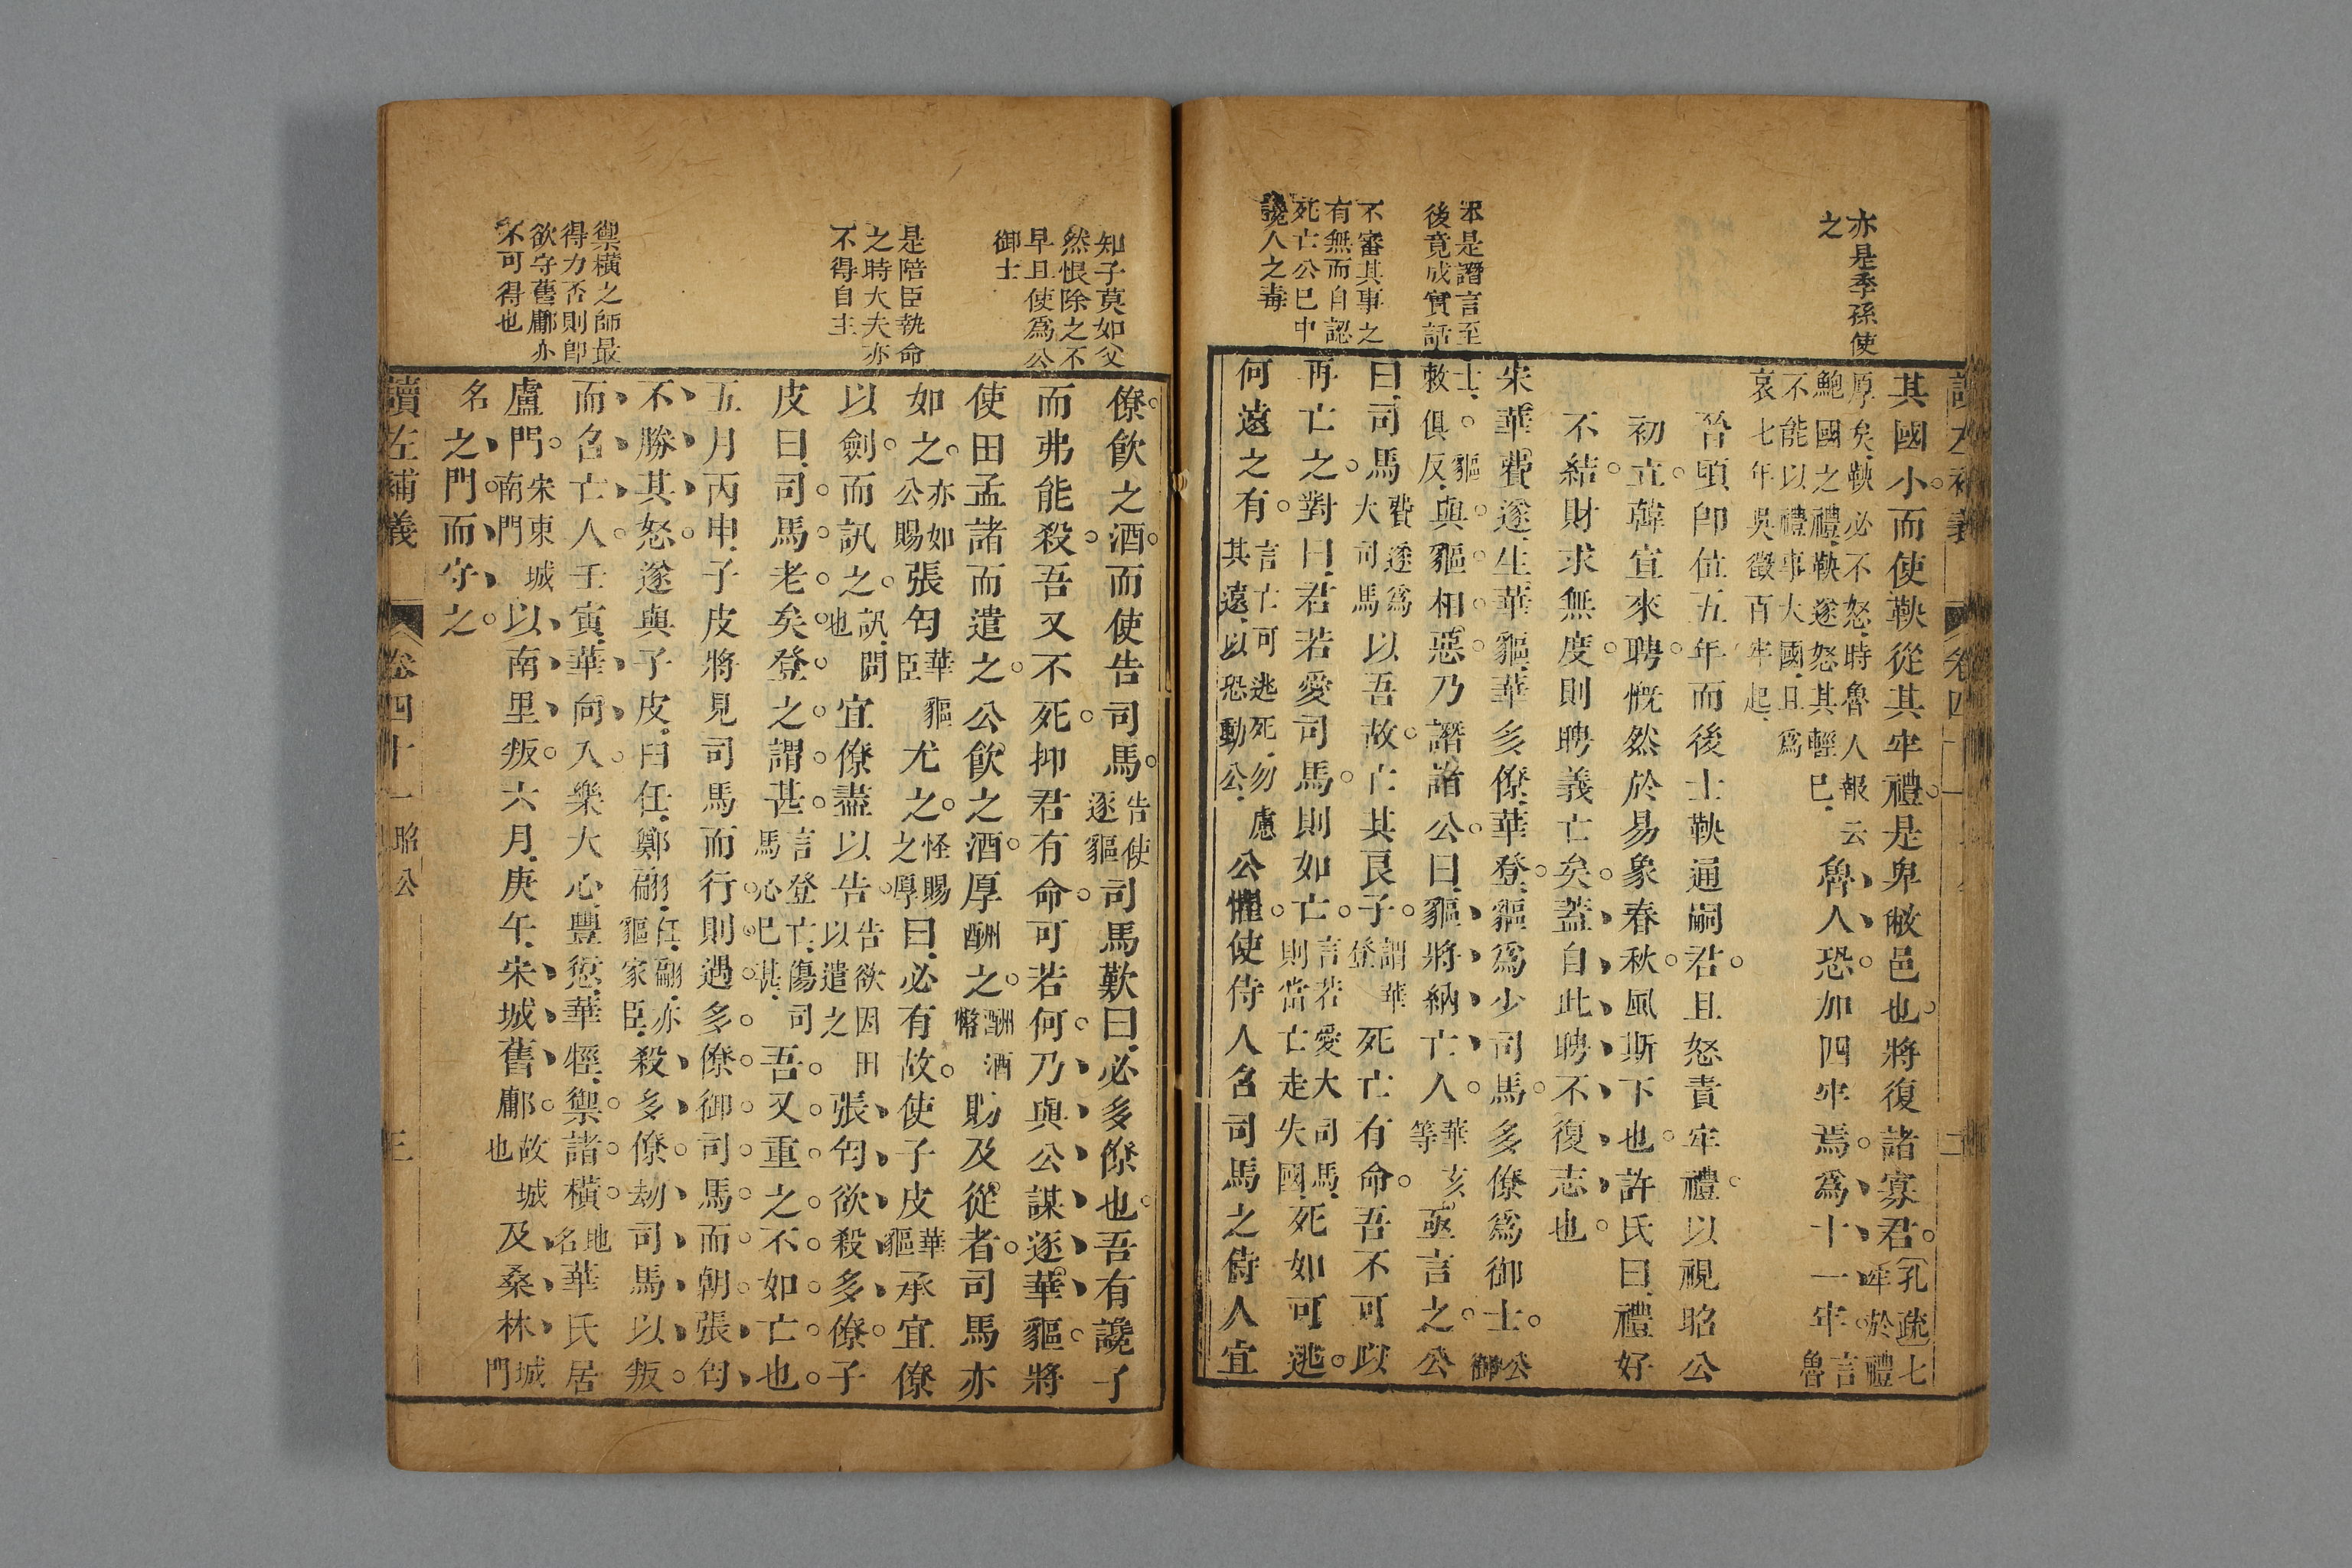 亦是季孫使
之
本是譖言至
後竟成實話
不審其事之
有無而自認
死亡公已中
讒人之毒
其國小而使鞅從其牢禮是卑敝邑也將復諸寡君孔疏七牢於禮
厚矣鞅必不怒時魯人報云
鮑國之禮鞅遂怒其輕已魯人恐加四牢焉爲十一牢言魯
不能以禮事大國且爲
哀七年吳徵百牢起
晉頃卽位五年而後士鞅通嗣君且怒責牢禮以視昭公
初立韓宣來聘慨然於易象春秋風斯下也許氏曰禮好
不結財求無度則聘義亡矣蓋自此聘不復志也
宋華費遂生華貙華多僚華登貙爲少司馬多僚爲御士公御
士貙敕俱反與貙相惡乃譖諸公曰貙將納亡人華亥等亟言之公
曰司馬費遂爲大司馬以吾故亡其良子謂華登死亡有命吾不可以
再亡之對曰君若愛司馬則如亡言若愛大司馬則當亡走失國死如可逃
何遠之有言亡可逃死勿慮其遠以恐動公公懼使侍人召司馬之侍人宜
知子莫如父
然恨除之不
早且使爲公
御士
是陪臣執命
之時大夫亦
不得自主
禦橫之師最
得力否則卽
欲守舊鄘亦
不可得也
僚飮之酒而使告司馬告使逐貙司馬歎曰必多僚也吾有讒子
而弗能殺吾又不死抑君有命可若何乃與公謀逐華貙將
使田孟諸而遣之公飮之酒厚酬之酬酒幣賜及從者司馬亦
如之亦如公賜張匄華貙臣尤之怪賜之厚曰必有故使子皮華貙承宜僚
以劍而訊之訊問也宜僚盡以告告欲因田以遣之張匄欲殺多僚子
皮曰司馬老矣登之謂甚言登亡傷司馬心已甚吾又重之不如亡也
五月丙申子皮將見司馬而行則遇多僚御司馬而朝張匄
不勝其怒遂與子皮臼任鄭翩任翩亦貙家臣殺多僚劫司馬以叛
而召亡人壬寅華向入樂大心豐愆華牼禦諸橫地名華氏居
盧門宋東城南門以南里叛六月庚午宋城舊鄘故城也及桑林城門
名之門而守之
讀左補義 卷四十一 昭公 三